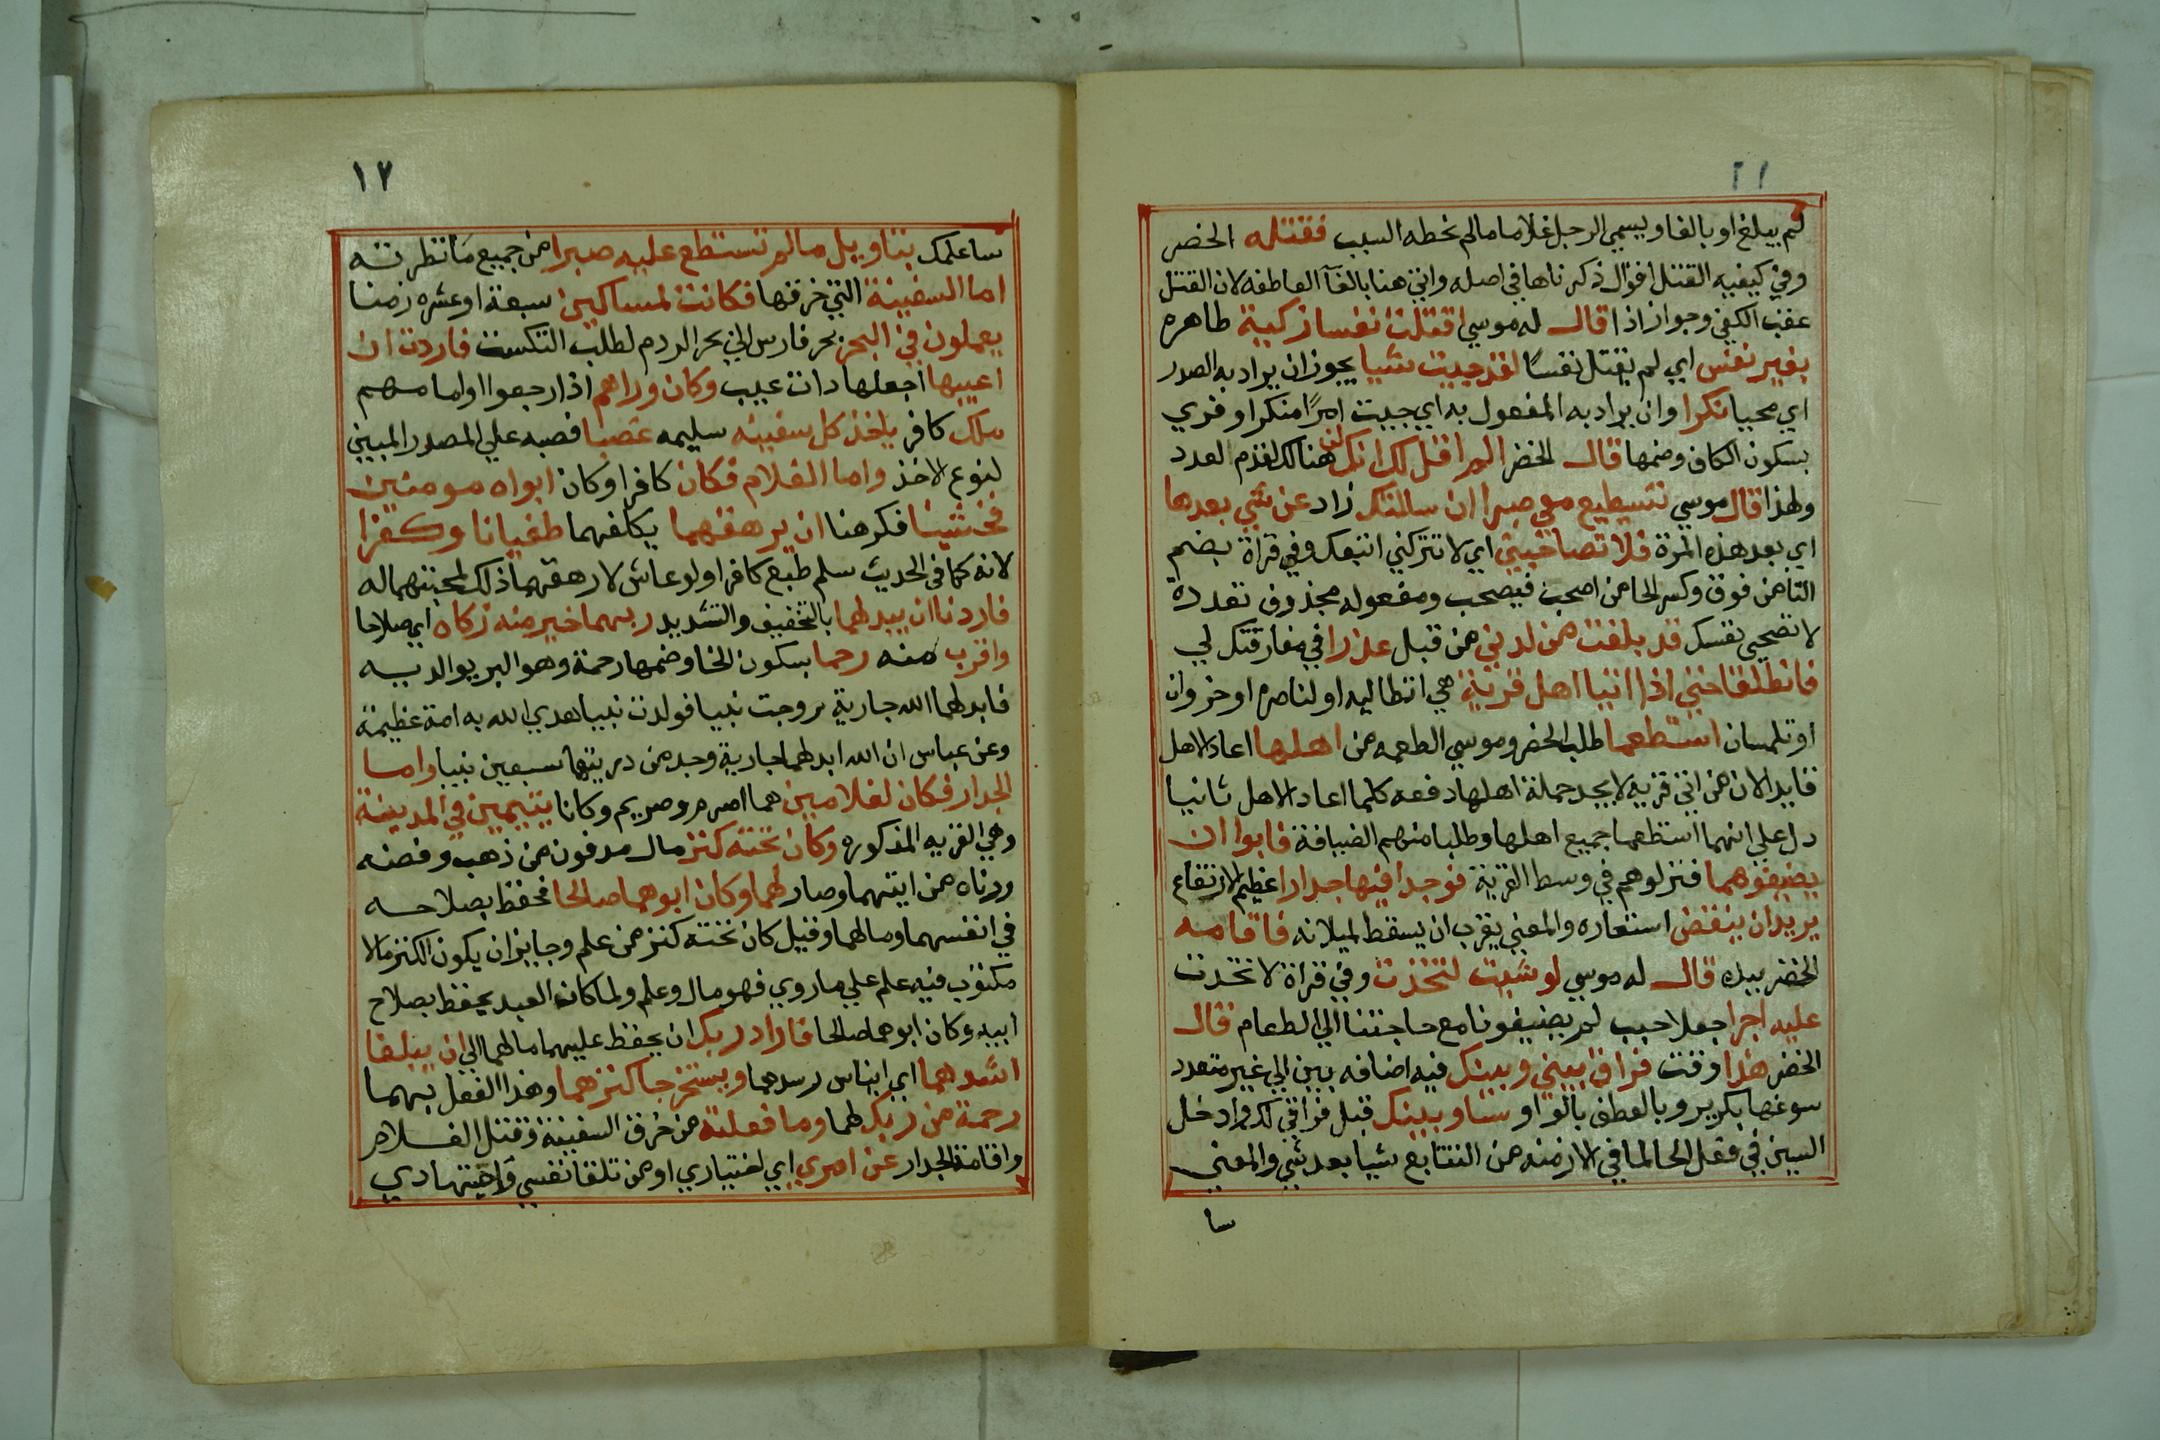 ١٦
لم يبلغ او بالغا ويسمي الرجل غلاما مالم نحطه السبب فقتله الخضر
وفي كيفيه القتل اقوال ذكرناها في اصله واتي هنا بالفآ العاطفه لان القتل
عقب اللقي وجواز اذا قال له موسي اقتلت نفسا زكية طاهره
بغير نفس اي لم يقتل نفسًا لقد جيت شيا يجوز ان يراد به الصدر
اي مجيا نكرا وان يراد به المفعول به اي جيت امرًا منكرا وقري
بسكون الكاف وضمها قال الخضر الم اقل لك انك لن هنالك لقدم العدد
ولهذا قال موسي تستطيع معي صبرا ان سالتك زاد عن شي بعدها
اي بعد هذه المرة فلا تصاحبني اي لا تتركني اتبعك وفي قراة بضم
التا من فوق وكسر الحا من اصحب فيصحب ومفعوله محذوف تقدرة
لا تصحبى نفسك قد بلغت من لدني من قبل عذرا في مفارقتك لي
فانطلقا حتي اذا اتيا اهل قرية هي انطاليه او لناصره او خروان
او تلمسان استطعما طلب الخضر وموسي الطعمه من اهلها اعاد الاهل
فايد الان من اتي قريه لا يجد جملة اهلها دفعه كلما اعاد الاهل ثانيا
دل علي انهما استطعما جميع اهلها وطلبا منهم الضيافة فابوا ان
يضيفوهما فنزلوهم في وسط القرية فوجدا فيها جدارا عظيم الارتفاع
يريد ان ينقض استعاره والمعني يقرب ان يسقط لميلانه فاقامه
الخضر بيده قال له موسي لو شيت لتخذت وفي قراة لا تخدت
عليه اجرا جعلا حيب لم يضيفونا مع حاجتنا الي الطعام قال
الخضر هذا وقت فراق بيني وبينك فيه اضافه بين الي غير متعدد
سوغها بكرير وبالعطف بالواو ساو بينك قبل فراقي لك وادخل
السين في فعل الحال لما في الازمنه من التتابع شيا بعد شي والمعني
سا
١٧
ساعلمك بتاويل مالم تستطع عليه صبرا من جميع ما نظرته
اما السفينة التي خرقها فكانت لمساكين سبعة او عشره زمنا
يعملون في البحر بحر فارس الي بحر الردم لطلب التكسب فاردت ان
اعيبها اجعلها دات عيب وكان وراهم اذا رجعوا او امامهم
ملك كافر ياخذ كل سفينه سليمه غصبا فصبه علي المصدر المبين
لنوع الاخذ واما الغلام فكان كافرا وكان ابواه مومنين
فخشينا فكرهنا ان يرهقهما يكلفهما طغيانا وكفرا
لانه كما في الحديث سلم طبع كافرا ولو عاش لارهقهما ذلك لمحبتهما له
فاردنا ان يبدلهما بالتخفيف والتشديد ربهما خير منه زكاه اي صلاحا
واقرب منه رحما بسكون الخا وضمها رحمة وهو البر بوالديه
فابدلهما الله جارية تروجت نبيا فولدت نبيا هدي الله به امة عظيمة
وعن عباس ان الله ابدلهما جارية وجد من دريتها سبعين نبيا واما
الجدار فكان لغلامين هما اصرم وصريم وكانا يتيمين في المدينة
وهي القريه المذكوره وكان تحته كنز مال مدفون من ذهب وفضه
ورتاه من ابيتهما وصار لهما وكان ابوهما صالحا فحفظ بصلاحه
في انفسهما ومالهما وقيل كان تحته كنز من علم وجايز ان يكون الكنز مالا
مكتوب فيه علم علي ماروي فهو مال وعلم ولما كان العبد يحفظ بصلاح
ابيه وكان ابوهما صالحا فاراد ربك ان يحفظ عليهما مالهما الي ان يبلغا
اشدهما اي ايناس رسدهما ويستخرجا كنزهما وهذا الفعل بهما
رحمة من ربك لهما وما فعلته من خرق السفينة وقتل الغلام
واقامة الجدار عن امري اي اختياري او من تلقا نفسي واجتهادي